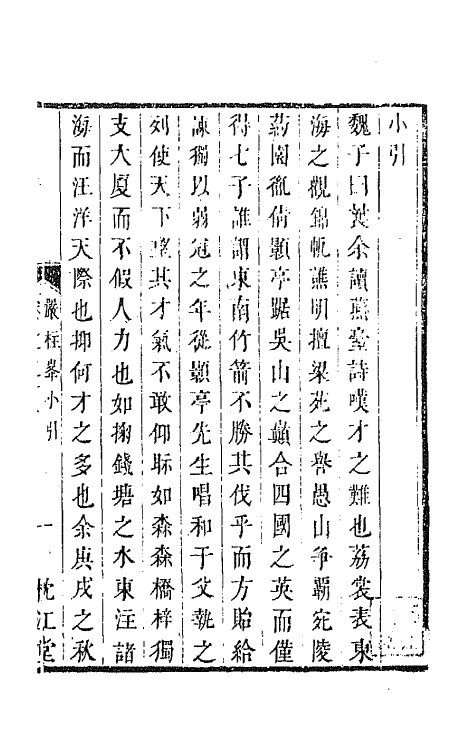 小引
魏子曰余讀燕臺詩嘆才之難也荔裳表東
海之觀錦帆譙明擅梁苑之譽愚山爭覇宛陵
藥園胤倩顥亭踞吳山之巔合四國之英而僅
得七子誰謂東南竹箭不勝其伐乎而方貽給
諫獨以弱冠之年從顥亭先生唱和于父執之
列使天下望其才氣不敢仰眎如森森橋梓獨
支大厦而不假人力也如掬錢塘之水東注諸
海而汪洋天際也抑何才之多也余庚戌之秋
嚴柱峯小引
一
枕江堂